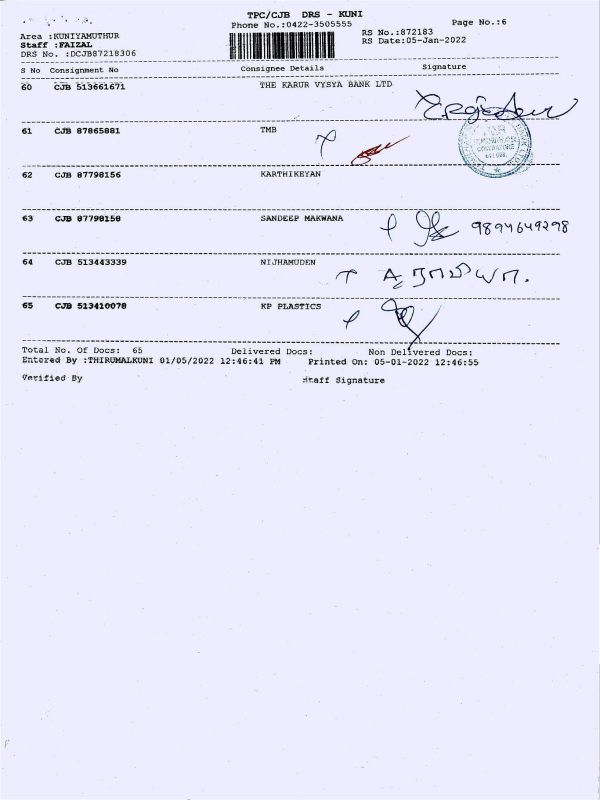 TPC/CJB DRS - KUNI
Phone No.:0422-3505555
Page No.:6
Area :KUNIYAMUTHUR
RS No.:872183
Staff :FAIZAL
RS Date:05-Jan-2022
DRS No. :DCJB87218306
S No Consignment No Consignee Details Signature
60 CJB 513661671 THE KARUR VYSYA BANK LTD
61 CJB 87865881 TMB
COIMBATORE
62 CJB 87798156 KARTHIKEYAN
63 CJB 87798158 SANDEEP MAKWANA 9894649298
64 CJB 513443339 NIJHAMUDEN
65 CJB 513410078 KP PLASTICS
Total No. Of Docs: 65 Delivered Docs: Non Delivered Docs:
Entered By :THIRUMALKUNI 01/05/2022 12:46:41 PM Printed On: 05-01-2022 12:46:55
Verified By Staff Signature